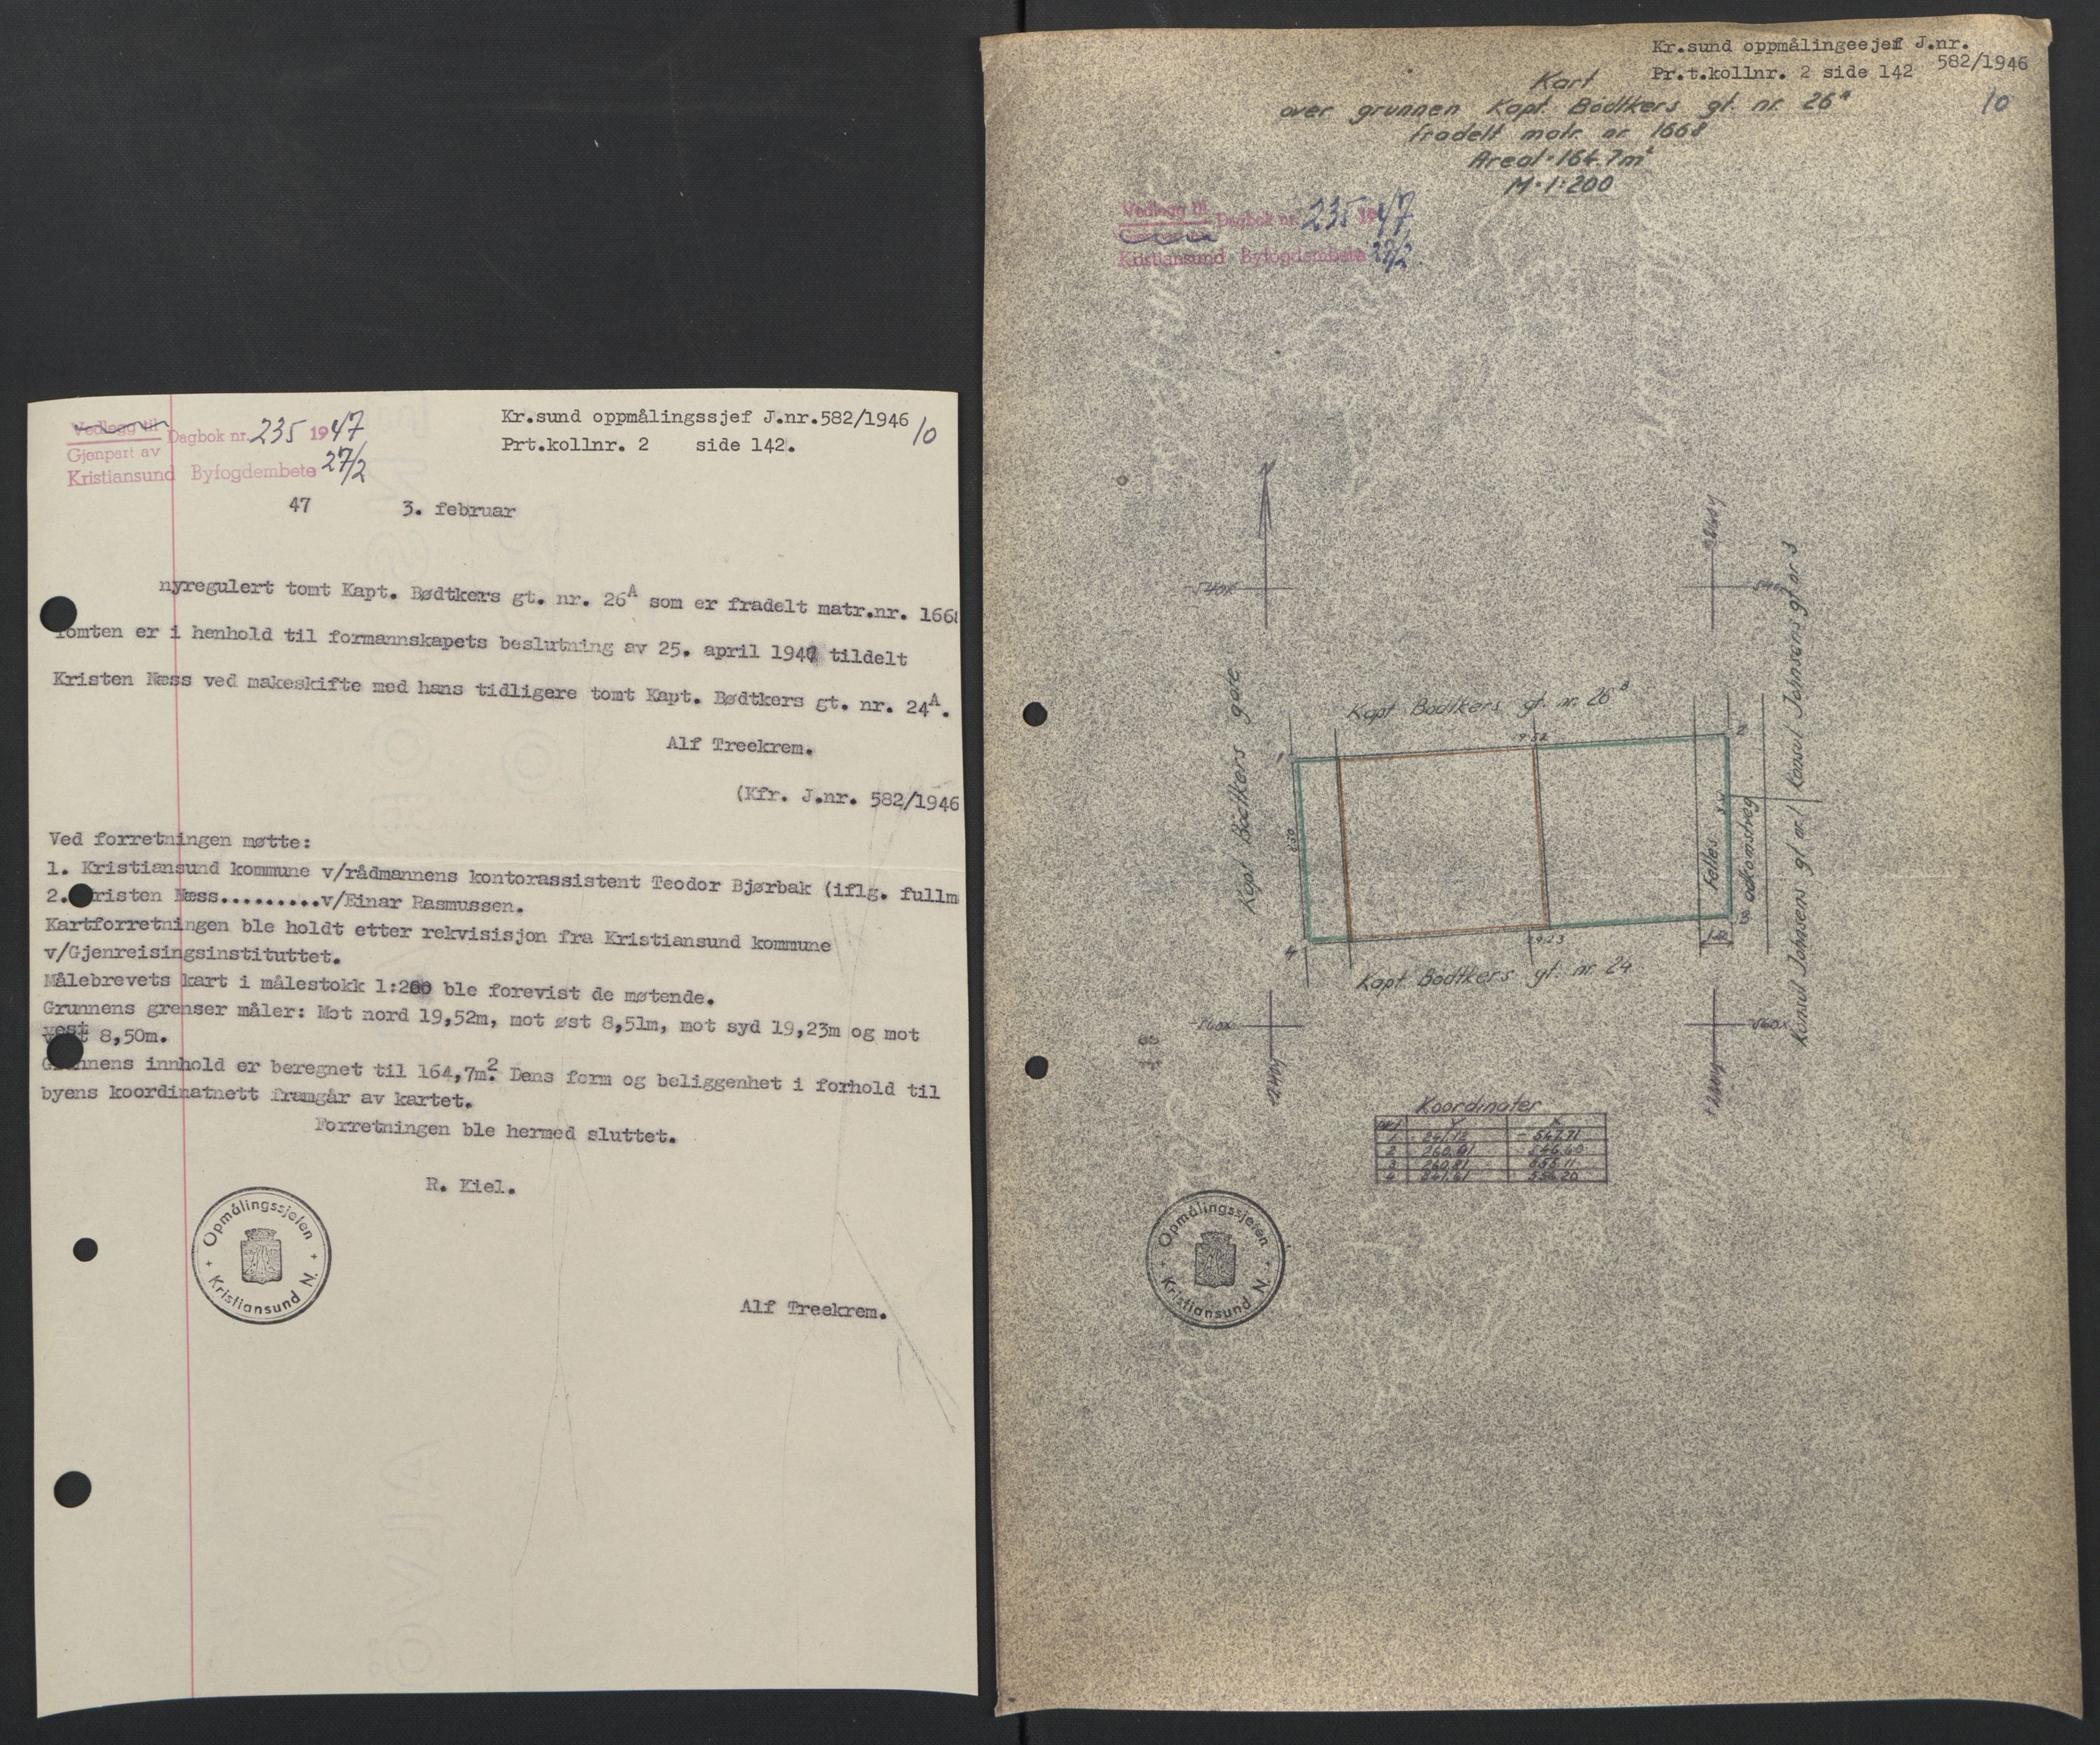 Vedlegg til
Gjenpart av
Dagbok nr. 235 1947
Kristiansund Byfogdembete 27/2
Kr.sund oppmålingssjef J.nr.582/1946
10
Prt.kollnr. 2 side 142.
47 3. februar
nyregulert tomt Kapt. Bødtkers gt. nr. 26A som er fradelt matr.nr. 1668
Tomten er i henhold til formannskapets beslutning av 25. april 194 tildelt
Kristen Næss ved makeskifte med hans tidligere tomt Kapt. Bødtkers gt. nr. 24A.
Alf Treekrem.
(Kfr. J.nr. 582/1946
Ved forretningen møtte:
1. Kristiansund kommune v/rådmannens kontorassistent Teodor Bjørbak (iflg. fullm
2. Kristen Næss.........v/Einar Rasmussen.
Kartforretningen ble holdt etter rekvisisjon fra Kristiansund kommune
v/Gjenreisingsinstituttet.
Målebrevets kart i målestokk 1:200 ble forevist de møtende.
Grunnens grenser måler: Mot nord 19,52m, mot øst 8,51m, mot syd 19,23m og mot
vest 8,50m.
Grunnens innhold er beregnet til 164,7m². Dens form og beliggenhet i forhold til
byens koordinatnett framgår av kartet.
Forretningen ble hermed sluttet.
R. Kiel.
Opmålingssjefen
Kristiansund N.
Alf Treekrem.
Kr.sund oppmålingeejef J.nr.
582/1946
Pr.t.kollnr. 2 side 142
10
Kart
over grunnen Kapt. Bødtkers gt. nr. 26a
fradelt matr. nr. 1668
Areal = 164.7m²
M = 1:200
Vedlegg til
Dagbok nr. 235 1947
Kristiansund Byfogdembete 27/2
-540x
-540x
Kapt Bødtkers gate
Kapt Bødtkers gt. nr. 26B
19.52
1
2
8.50
8.51
Felles
adkomstveg
Konsul Johnsens gt. nr. 3
Konsul Johnsens gt. nr. 1
3
4
19.23
Kapt Bødtkers gt. nr. 24
-560x
-560x
Koordinater
Y X
1 241.12 - 547.71
2 260.61 546.60
3 260.81 555.11
4 241.61 556.20
Opmålingssjefen
Kristiansund N.